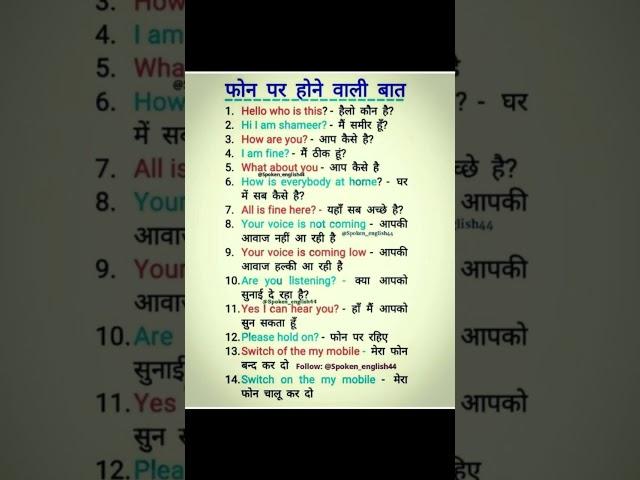 फोन पर होने वाली बात
1. Hello who is this? - हैलो कौन है?
2. Hi I am shameer? - मैं समीर हूँ?
3. How are you? - आप कैसे है?
4. I am fine? - मैं ठीक हूं?
5. What about you - आप कैसे है
@Spoken_english44
6. How is everybody at home? - घर
में सब कैसे है?
7. All is fine here? - यहाँ सब अच्छे है?
8. Your voice is not coming - आपकी
आवाज नहीं आ रही है @Spoken_english44
9. Your voice is coming low - आपकी
आवाज हल्की आ रही है
10. Are you listening? - क्या आपको
सुनाई दे रहा है?
@Spoken_english44
11. Yes I can hear you? - हाँ मैं आपको
सुन सकता हूँ
12. Please hold on? - फोन पर रहिए
13. Switch of the my mobile - मेरा फोन
बन्द कर दो Follow: @Spoken_english44
14. Switch on the my mobile - मेरा
फोन चालू कर दो
4. I am
5. Wha
6. How ? - घर
में सब
7. All is छे है?
8. Your आपकी
आवाज glish44
9. Your आपकी
आवाज
10. Are आपको
सुनाई
11. Yes आपको
सुन
12. Plea